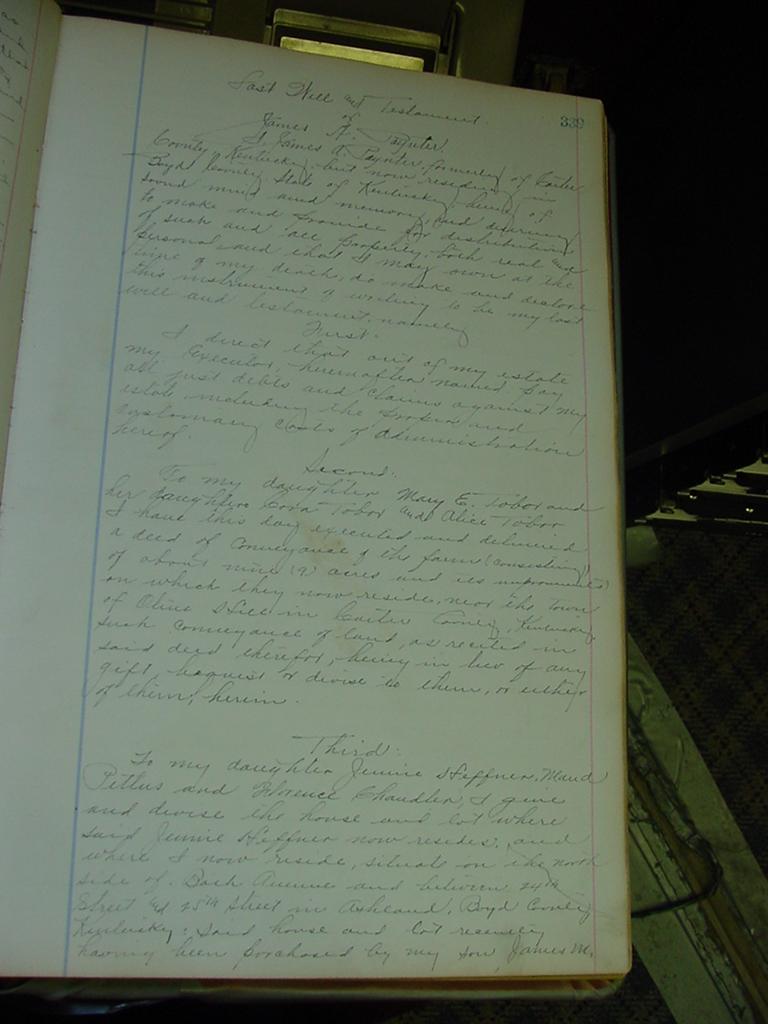 339
Last Will and Testament
of
James A. Paynter.
I, James A. Paynter formerly of Carter
County, Kentucky, but now residing in
Boyd County State of Kentucky, being of
sound mind and memory, and desiring
to make and provide for distribution
of such and all property, both real and
personal and that I may own at the
time of my death, do make and declare
this instrument of writing to be my last
will and testament, namely
First.
I direct that out of my estate
my Executor, hereinafter named pay
all just debts and claims against my
estate, including the proper and
customary costs of administration
hereof.
Second.
To my daughter Mary E. Tobor and
her daughters Cora Tobor and Alice Tobor
I have this day executed and delivered
a deed of conveyance of the farm (consisting)
of about nine (9) acres and its improvements
on which they now reside, near the Town
of Olive Hill in Carter County, Kentucky
such conveyance of land, as recited in
said deed therefor, being in lieu of any
gift, bequest or devise to them, or either
of them, herein.
Third.
To my daughter Jennie Heffner, Maud
Pettus and Florence Chandler, I give
and devise the house and lot where
said Jennie Heffner now resides, and
where I now reside, situate on the north
side of Bath Avenue and between 24th
Street and 25th Street in Ashland, Boyd County
Kentucky; said house and lot recently
having been purchased by my son, James M.